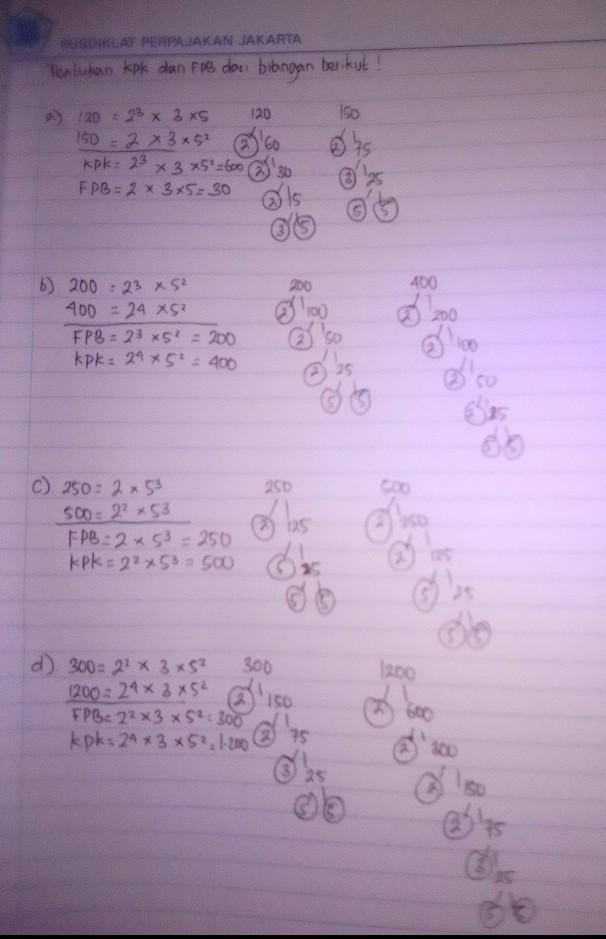 PUSDIKLAT PERPAJAKAN JAKARTA
Tentukan KPK dan FPB dari bilangan berikut !
a) 120 = 2³ × 3 × 5
150 = 2 × 3 × 5²
KPK = 2³ × 3 × 5² = 600
FPB = 2 × 3 × 5 = 30
120
2 60
2 30
2 15
3 5
150
2 75
3 25
5 5
b) 200 = 2³ × 5²
400 = 2⁴ × 5²
FPB = 2³ × 5² = 200
KPK = 2⁴ × 5² = 400
200
2 100
2 50
2 25
5 5
400
2 200
2 100
2 50
2 25
5 5
c) 250 = 2 × 5³
500 = 2² × 5³
FPB = 2 × 5³ = 250
KPK = 2² × 5³ = 500
250
2 125
5 25
5 5
500
2 250
2 125
5 25
5 5
d) 300 = 2² × 3 × 5²
1200 = 2⁴ × 3 × 5²
FPB = 2² × 3 × 5² = 300
KPK = 2⁴ × 3 × 5² = 1.200
300
2 150
2 75
3 25
5 5
1200
2 600
2 300
2 150
2 75
3 25
5 5